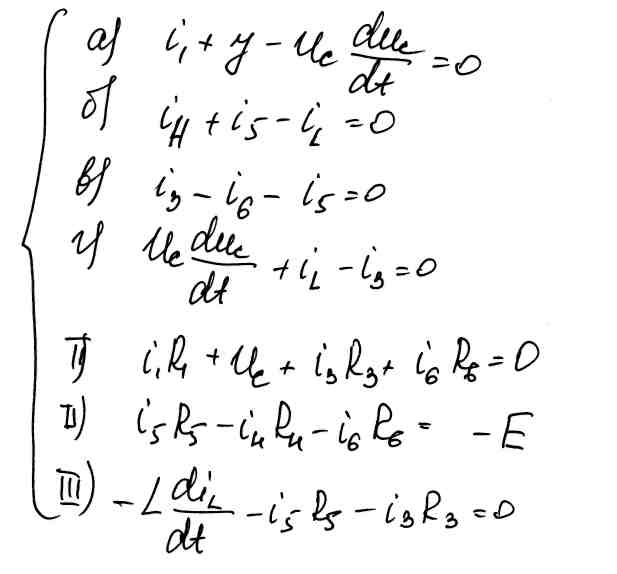 а) i₁ + y - u_c du_c/dt = 0
б) i_4 + i_5 - i_L = 0
в) i_3 - i_6 - i_5 = 0
г) u_c du_c/dt + i_L - i_3 = 0
I) i_1R_1 + u_c + i_3R_3 + i_6R_6 = 0
II) i_5R_5 - i_4R_4 - i_6R_6 = -E
III) -L di_L/dt - i_5R_5 - i_3R_3 = 0